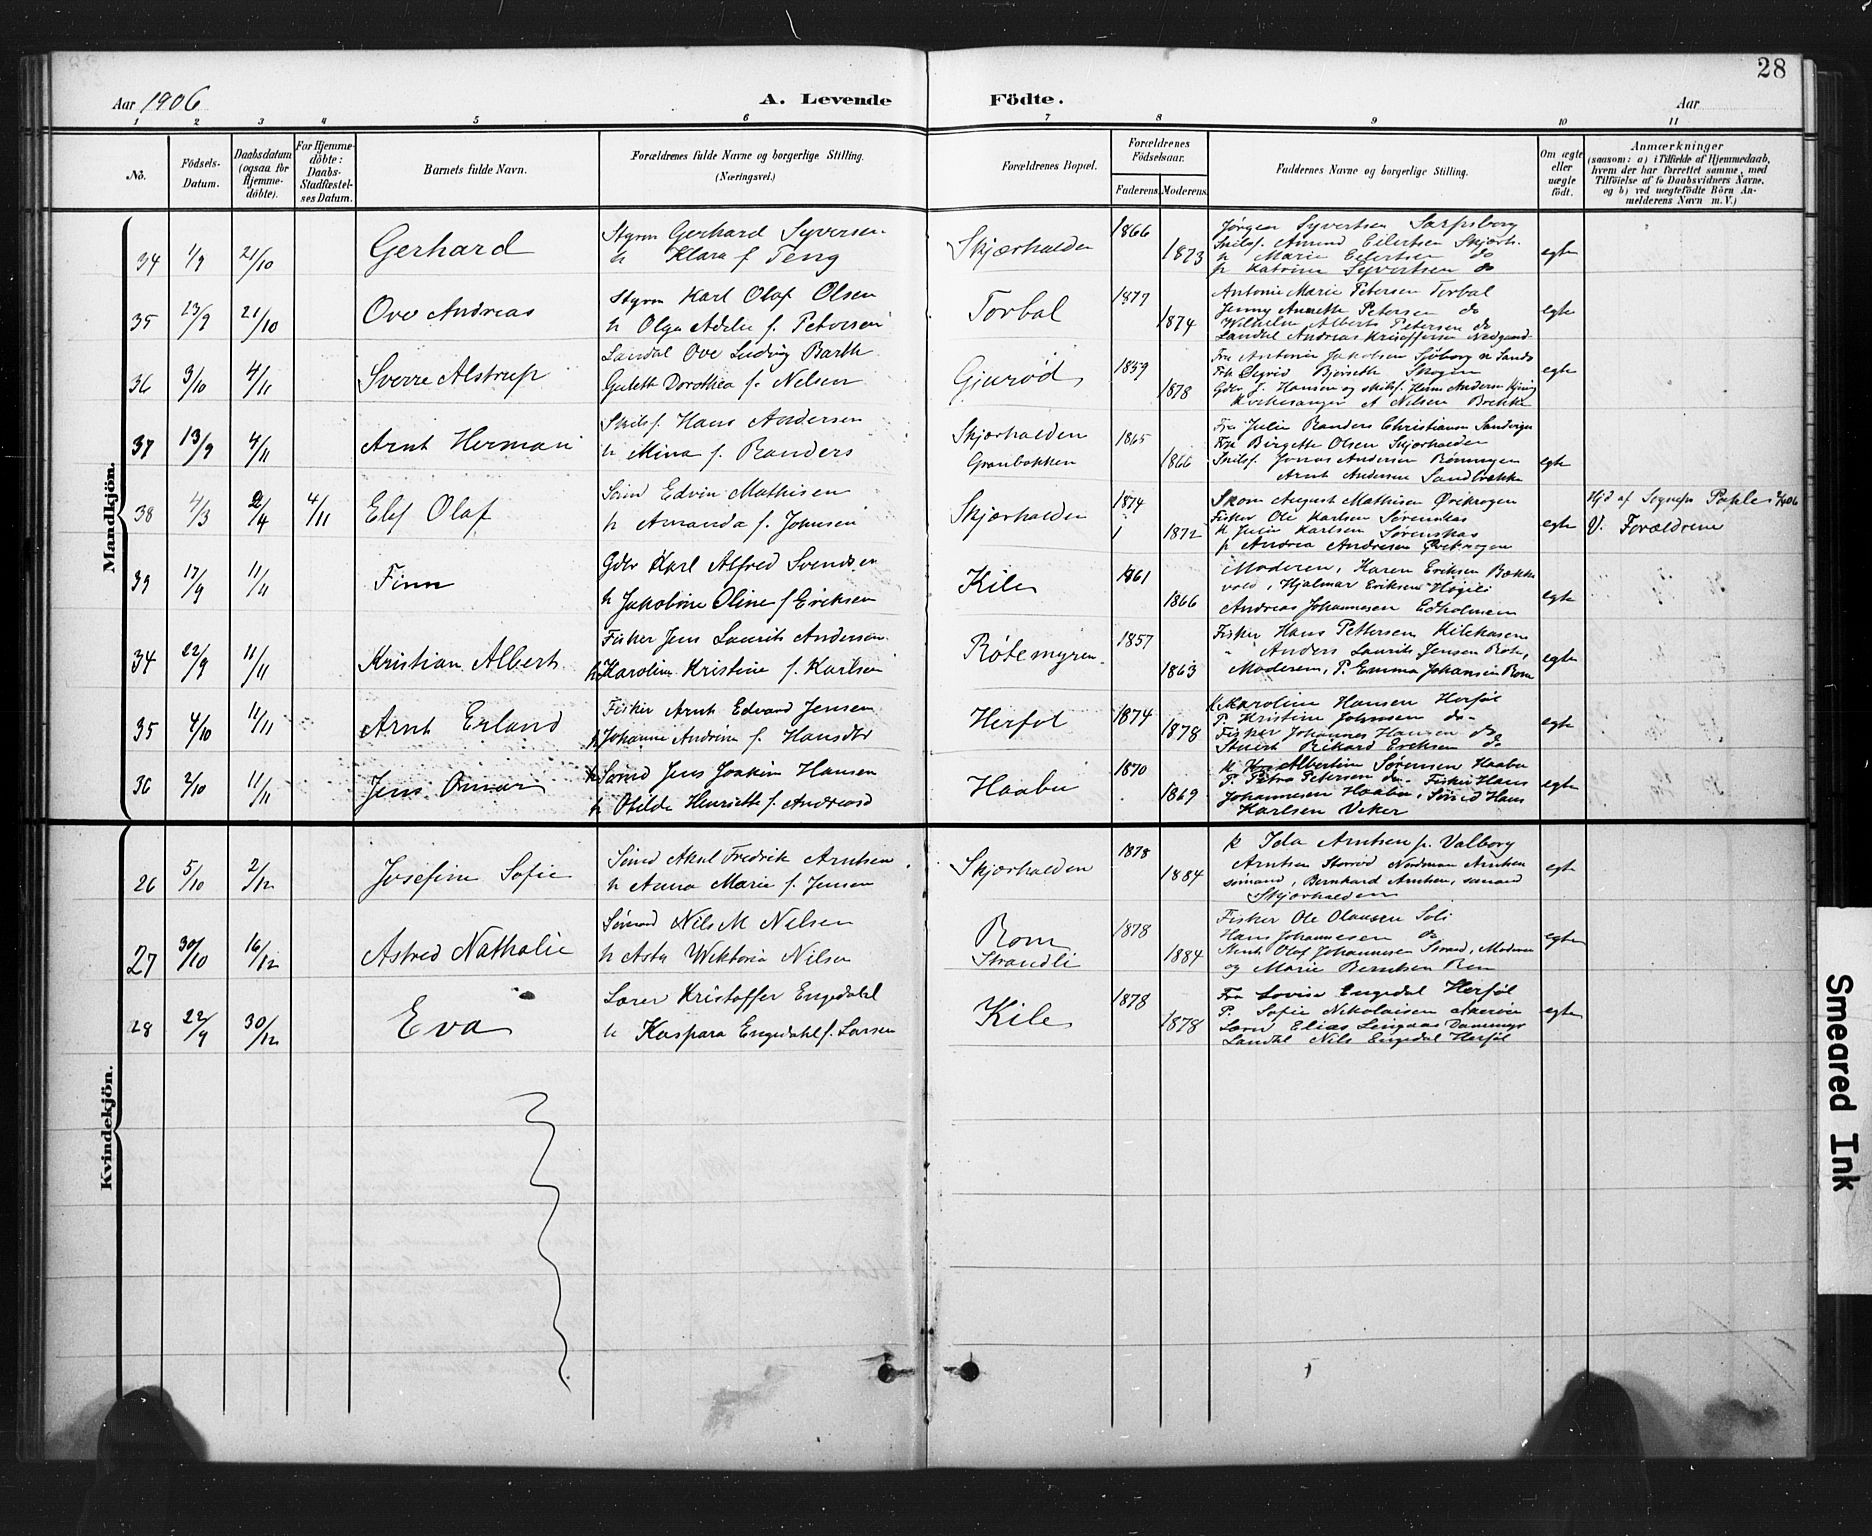 28
Aar 1906 A. Levende Födte. Aar
1 2 3 4 5 6 7 8 9 10 11
No.
Födsels-Datum.
Daabsdatum (ogsaa for Hjemmedöbte).
For Hjemmedöbte: Daabs-Stadfæstelses Datum.
Barnets fulde Navn.
Forældrenes fulde Navne og borgerlige Stilling. (Næringsvei.)
Forældrenes Bopæl.
Forældrenes Födselsaar.
Faderens. Moderens.
Faddernes Navne og borgerlige Stilling.
Om ægte eller uægte födt.
Anmærkninger
(saasom: a) i Tilfælde af Hjemmedaab, hvem der har forrettet samme, med Tilföielse af to Daabsvidners Navne, og b) ved uægtefödte Börn Anmelderens Navn m.V.)
Mandkjön.
34 1/9 21/10 Gerhard
Styrm Gerhard Syversen
h Klara f Teng
Skjærhalden 1866 1873
Jørgen Syvertsen Sarpsborg
Skilsf. Amund Eilertsen Skjærh.
h Marie Eilertsen do
p Katrine Syvertsen do
egte
35 13/9 21/10 Ove Andreas
Styrm Karl Olaf Olsen
h Olga Adele f. Petersen
Torbal 1877 1874
Antonie Marie Petersen Torbal
Jenny Annette Petersen do
Wilhelm Alberts Petersen do
Landhdl Andreas Kristoffersen Nedgaard
egte
36 3/10 4/11 Sverre Alstrup
Landhdl Ove Ludvig Barth
Gudeth Dorothea f. Nelsen
Gjurød 1859 1878
Fru Antonie Jakobsen Sjöborg n Sands
Frk Sigrid Bjöiseth Skogen
Gdbr J. Hansen og Skilsf. Hans Andersen
Kirkesanger A Nilsen Brekke
egte
37 13/9 4/11 Arnt Herman
Skilsf. Hans Andersen
h Mina f. Randers
Skjærhalden
Granbakken
1865 1866
Fru Julie Randers Christiansen Sandvigen
Fru Birgette Olsen Skjærhalden
Skilsf. Jonas Andersen Rönningen
Arnt Andersen Sandbrække
egte
38 4/3 2/4 4/11 Elef Olaf
Sömd Edvin Mathisen
h Amanda f. Johnsen
Skjærhalden 1874 1872
Skom August Mathisen Ørekrogen
Fisker Ole Karlsen Sørenskas
k Julie Karlsen Sørenskas
p Andrea Andresen Ørekrogen
egte
Hjd af Sognepr Pahle 2/4 06
V. Forældrene
39 17/9 11/11 Finn
Gdbr Karl Alfred Svendsen
h Jakobine Oline f Eriksen
Kile 1861 1866
Moderen, Karen Eriksen Bække
vold, Hjalmar Eriksen Høgeli
Andreas Johannesen Edholmen
egte
34 22/9 11/11 Kristian Albert
Fisker Jens Laurits Andersen
h Karoline Kristine f. Karlsen
Røtemyren 1857 1863
Fisker Hans Pettersen Kilekasene
" Anders Laurits Jensen Røte,
Moderen, P. Emma Johansen Rom
egte
35 4/10 11/11 Arnt Erland
Fisker Arnt Edvard Jensen
h Johanne Andrine f. Hansdtr
Herføl 1874 1878
k Karoline Hansen Herføl
P. Kristine Johnsen do
Fisker Johannes Hansen do
Stuert Rikard Eriksen do
egte
36 2/10 11/11 Jens Omar
Sømd Jens Joakim Hansen
h Otilde Henriette f. Andreasd
Haabu 1870 1869
k Albertine Sørensen Haabu
P. Petra Petersen do. Fisker Hans
Johannesen Haabu, Sømd Hans
Karlsen Viker
egte
Kvindekjön.
26 5/10 2/12 Josefine Sofie
Sømd Aksel Fredrik Arntsen
h Anna Marie f. Jensen
Skjærhalden 1878 1884
k Ida Arntsen p. Valborg
Arntsen Storrød Nordman Arntsen
sømand, Bernhard Arntsen, sømand
Skjærhalden
egte
27 30/10 16/12 Astrid Nathalie
Sømand Nils M Nilsen
h Asta Wiktoria Nilsen
Rom
Strandli
1878 1884
Fisker Ole Olaussen Soli
Hans Johannesen do
Stuert Olaf Johannesen Strand, Moderen
og Marie Berntsen Rom
egte
28 22/9 30/12 Eva
Lærer Kristoffer Engedahl
h Kaspara Engedahl f. Larsen
Kile 1878 1878
Fru Lovise Engedal Herføl
P. Sofie Nikolaisen Akerøie
Lærer Elias Lingaas Dammyr
Landhdl Nils Engedal Herføl
egte
Smeared Ink